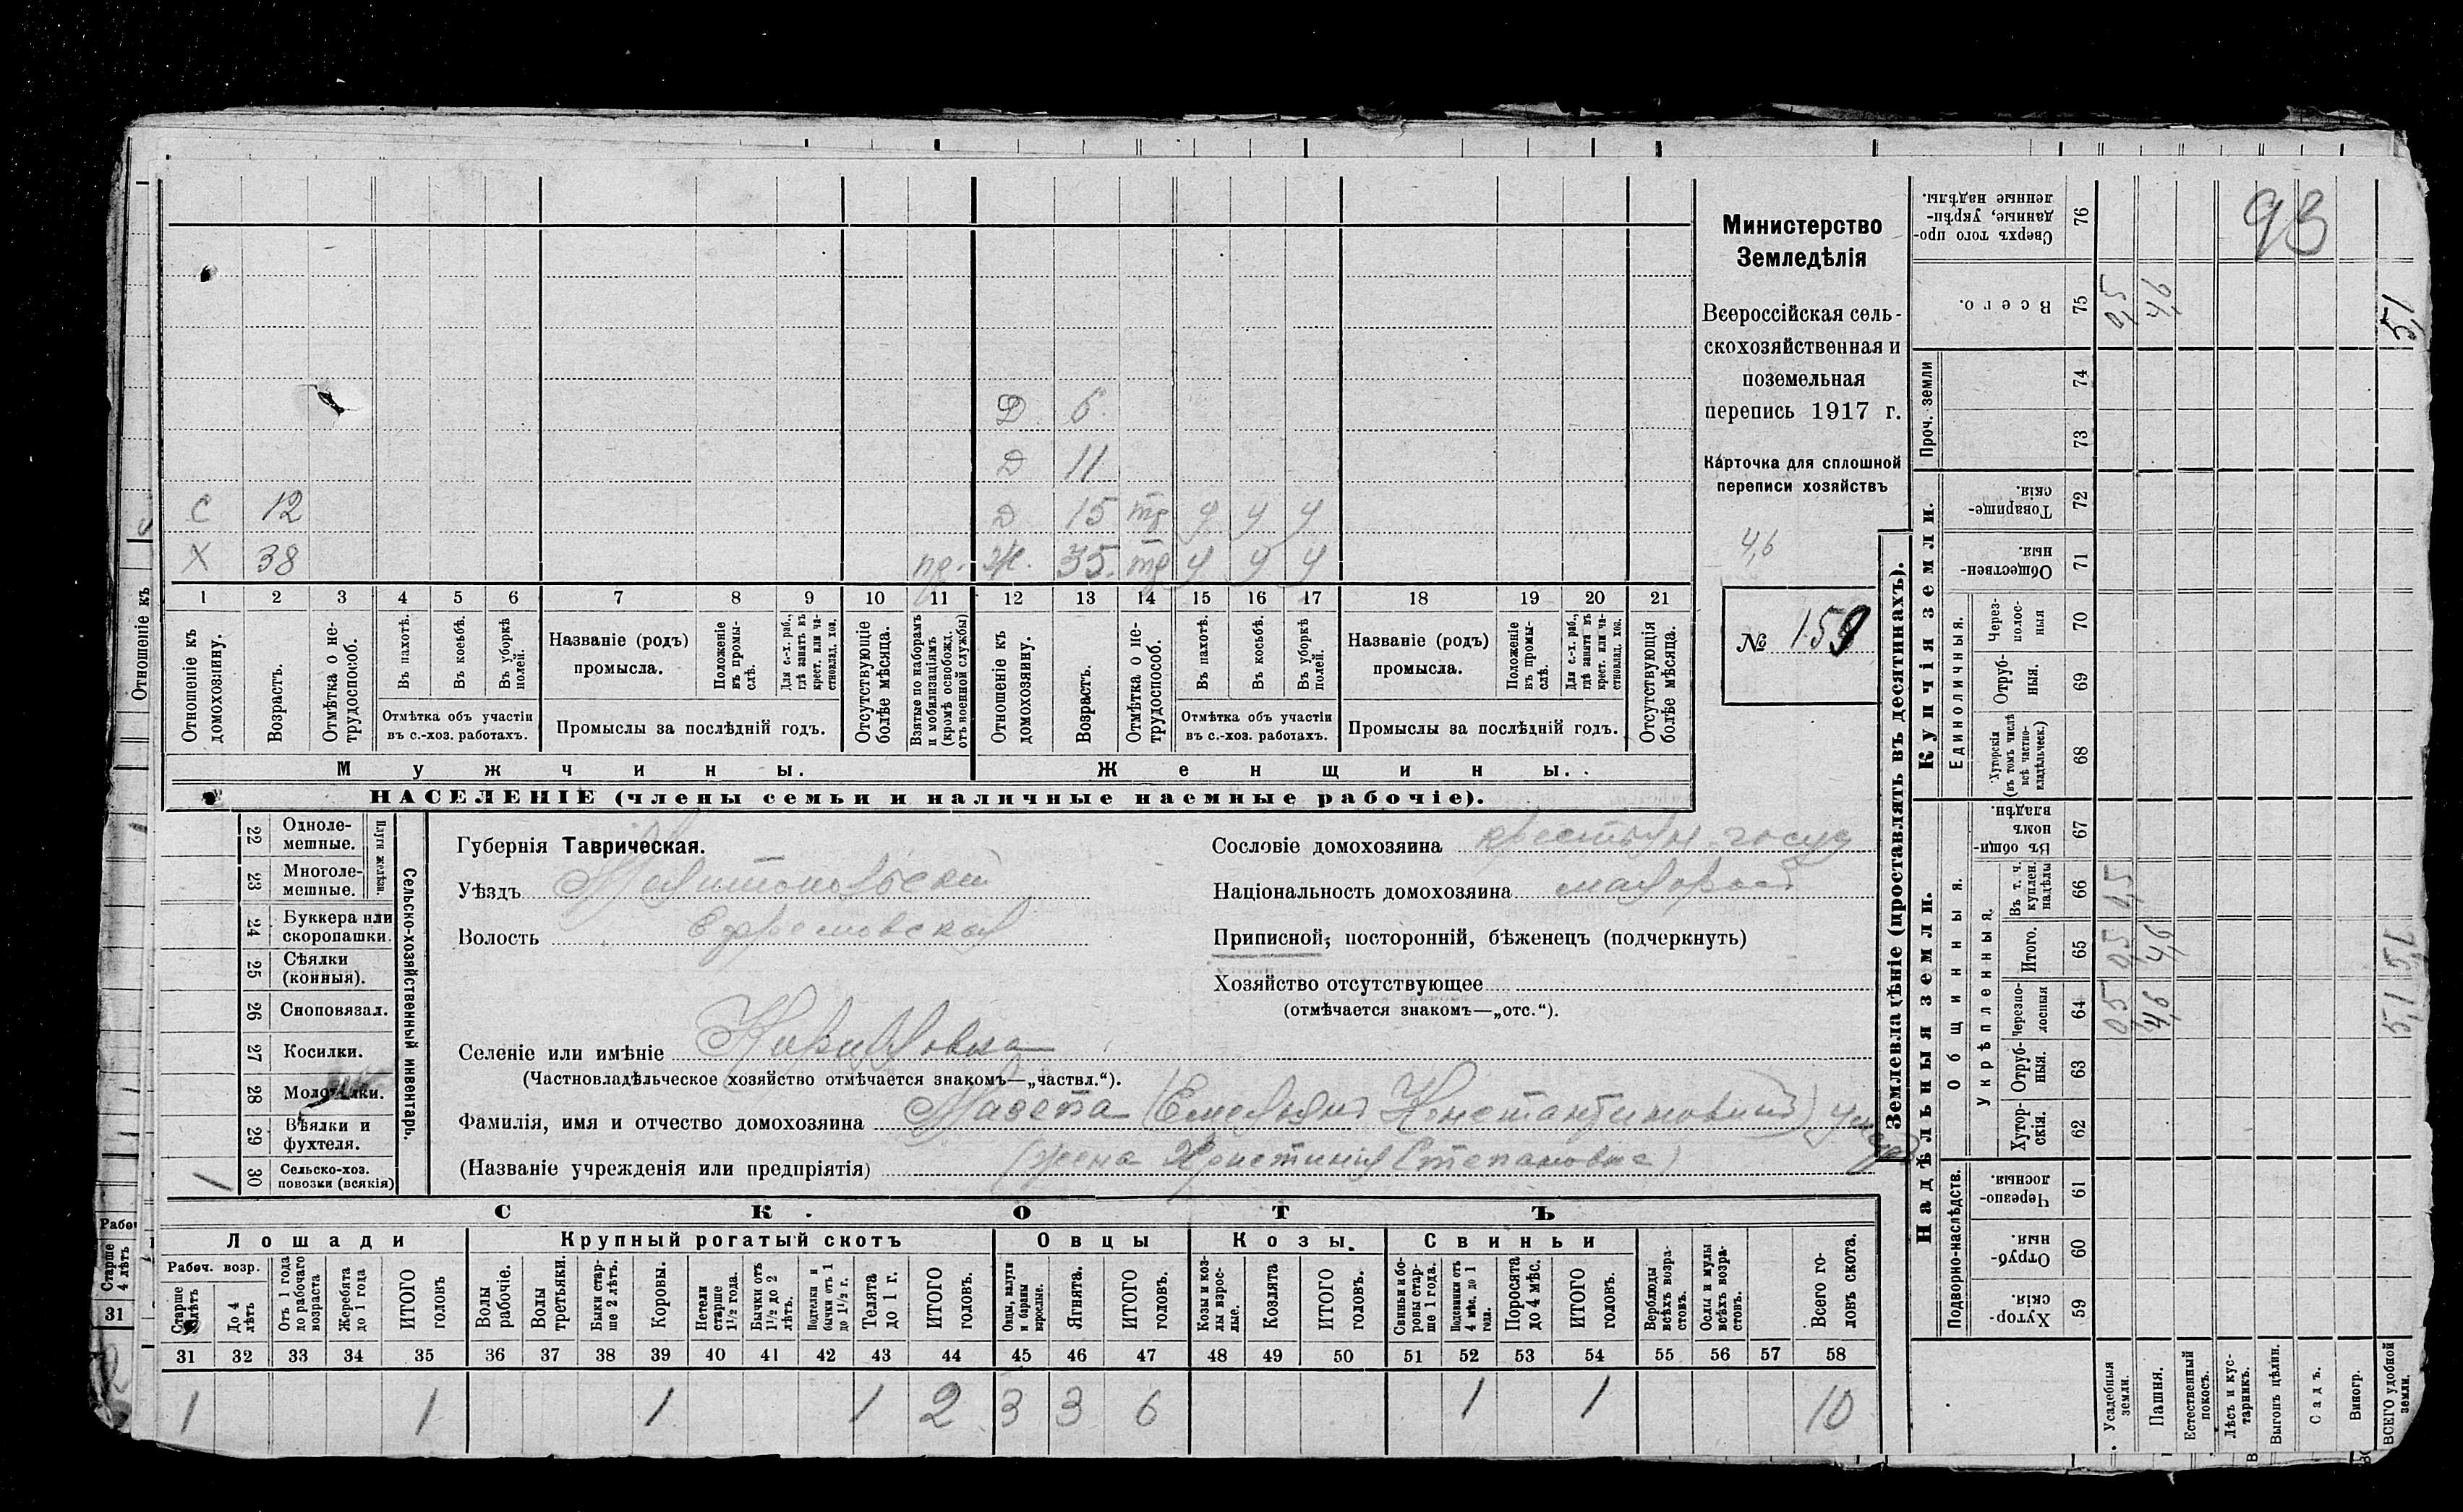 Министерство
Земледѣлія
Всероссійская сель-
скохозяйственная и
поземельная
перепись 1917 г.
Карточка для сплошной
переписи хозяйствъ
4,6
№ 159
Д 6.
Д 11
С 12 Д 15 тр у у у
Х 38 пр. Ж. 35. тр у у у
1 2 3 4 5 6 7 8 9 10 11 12 13 14 15 16 17 18 19 20 21
Отношеніе къ домохозяину.
Возрастъ.
Отмѣтка о не-трудоспособ.
Въ пахотѣ.
Въ косьбѣ.
Въ уборкѣ полей.
Отмѣтка объ участіи
въ с.-хоз. работахъ.
Названіе (родъ)
промысла.
Положеніе въ промы-слѣ.
Для с.-х. раб., гдѣ занятъ въ крест. или ча-стновлад. хоз.
Промыслы за послѣдній годъ.
Отсутствующіе болѣе мѣсяца.
Взятые по наборамъ и мобилизаціямъ (кромѣ освобожд. отъ военной службы)
Отношеніе къ домохозяину.
Возрастъ.
Отмѣтка о не-трудоспособ.
Въ пахотѣ.
Въ косьбѣ.
Въ уборкѣ полей.
Отмѣтка объ участіи
въ с.-хоз. работахъ.
Названіе (родъ)
промысла.
Положеніе въ промы-слѣ.
Для с.-х. раб., гдѣ занятъ въ крест. или ча-стновлад. хоз.
Промыслы за послѣдній годъ.
Отсутствующія болѣе мѣсяца.
Мужчины. Женщины.
НАСЕЛЕНІЕ (члены семьи и наличные наемные рабочіе).
Сельско-хозяйственный инвентарь.
Плуги желѣзн.
22 Одноле-мешные.
23 Многоле-мешные.
24 Буккера или скоропашки.
25 Сѣялки (конныя).
26 Сноповязал.
27 Косилки.
28 Молотилки.
29 Вѣялки и фухтеля.
1 30 Сельско-хоз. повозки (всякія)
Губернія Таврическая.
Уѣздъ Мелитопольскій
Волость Ефремовская
Селеніе или имѣніе Кирилловка
(Частновладѣльческое хозяйство отмѣчается знакомъ—„частвл.“).
Фамилія, имя и отчество домохозяина Мазепа (Емельянъ Константиновичъ)
(Названіе учрежденія или предпріятія) (жена Христинія Степановна)
Сословіе домохозяина крестьян. госуд
Національность домохозяина малорос
Приписной, посторонній, бѣженецъ (подчеркнуть)
Хозяйство отсутствующее
(отмѣчается знакомъ—„отс.“).
СКОТЪ
Лошади Крупный рогатый скотъ Овцы Козы. Свиньи
Рабоч. возр.
Старше 4 лѣтъ
До 4 лѣтъ
Отъ 1 года до рабочаго возраста
Жеребята до 1 года
ИТОГО головъ
Волы рабочіе.
Волы третьяки.
Быки стар-ше 2 лѣтъ.
Коровы.
Нетели старше 1½ года.
Бычки отъ 1½ до 2 лѣтъ.
Подтелки и бычки отъ 1 до 1½ г.
Телята до 1 г.
ИТОГО головъ.
Овцы, валухи и бараны взрослые.
Ягнята.
ИТОГО головъ.
Козы и коз-лы взрос-лые.
Козлята
ИТОГО головъ.
Свиньи и бо-ровы стар-ше 1 года.
Подсвинки отъ 4 мѣс. до 1 года.
Поросята до 4 мѣс.
ИТОГО головъ.
Верблюды всѣхъ возра-стовъ.
Ослы и мулы всѣхъ возра-стовъ.
Всего го-ловъ скота.
31 32 33 34 35 36 37 38 39 40 41 42 43 44 45 46 47 48 49 50 51 52 53 54 55 56 57 58
1 1 1 1 2 3 3 6 1 1 10
Землевладѣніе (проставлять въ десятинахъ).
Надѣльныя земли. Купчія земли. Проч. земли
Подворно-наслѣдств. Общинныя. Укрѣпленныя. Единоличныя.
Хутор-скія. 59
Отруб-ныя. 60
Черезпо-лосныя. 61
Хутор-скія. 62
Отруб-ныя. 63
Черезпо-лосныя 64 05 4,6 5,1
Итого. 65 0,5 4,6 5,1
Въ т. ч. куплен. надѣлы 66
Въ общин-номъ владѣн. 67
Хуторскія (въ томъ числѣ всѣ частно-владѣльческ.) 68
Отруб-ныя. 69
Через-полос-ныя 70
Обществен-ныя. 71
Товарище-скія. 72
73
74
Всего. 75 0,5 4,6 5,1
Сверхъ того про-данные, укрѣп-ленные надѣлы. 76
93
Усадебныя земли.
Пашня.
Естественный покосъ.
Лѣсъ и кус-тарникъ.
Выгонъ цѣлин.
Садъ.
Виногр.
ВСЕГО удобной земли.
Отношеніе къ
Старше 4 лѣтъ
31